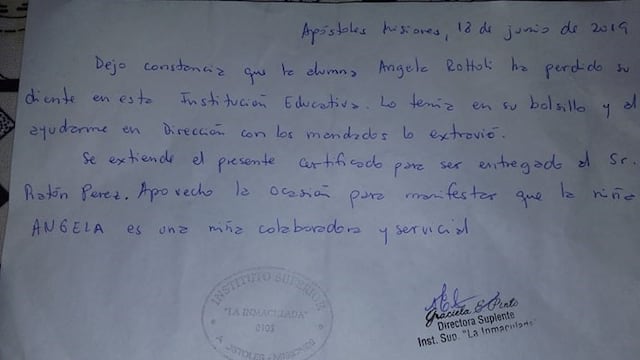 Apóstoles Misiones, 18 de junio de 2019
Dejo constancia que la alumna Angela Rottoli ha perdido su
diente en esta Institución Educativa. Lo tenía en su bolsillo y al
ayudarme en Dirección con los mandados lo extravió.
Se extiende el presente certificado para ser entregado al Sr.
Ratón Perez. Aprovecho la ocasión para manifestar que la niña
ANGELA es una niña colaboradora y servicial
INSTITUTO SUPERIOR
"LA INMACULADA"
0103
APOSTOLES - MISIONES
Graciela S. Pinto
Directora Suplente
Inst. Sup. "La Inmaculada"